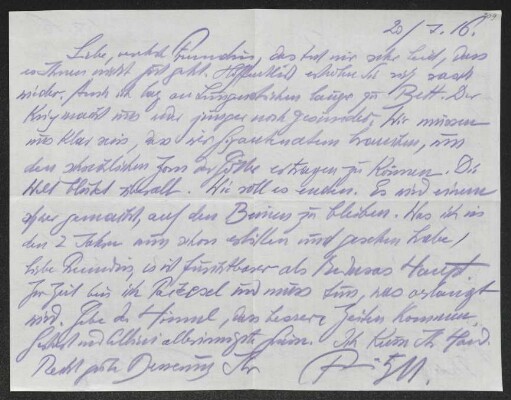 20/7.16.
Liebe, verehrte Freundin, das tut mir sehr leid, dass
es Ihnen nicht gut geht. Hoffentlich erholen Sie sich rasch
wieder. Auch ich lag an lange zu Bett. Der
Krieg macht uns weder jünger noch gesünder, wir müssen
uns klar sein, dass wir brauchen, um
den Zorn der Götter ertragen zu können. Die
Welt bleibt. Wie soll es enden. Es wird einem
schwer gemacht, auf den Beinen zu bleiben. Was ich in
den 2 Jahren nun schon erlitten und gesehen habe,
liebe Freundin, es ist furchtbarer als Medusas Haupt.
Zur Zeit bin ich und muss tun, was verlangt
wird. Gebe der Himmel, dass bessere Zeiten kommen.
und Ich küsse Ihre Hand.
Recht gute Ihr